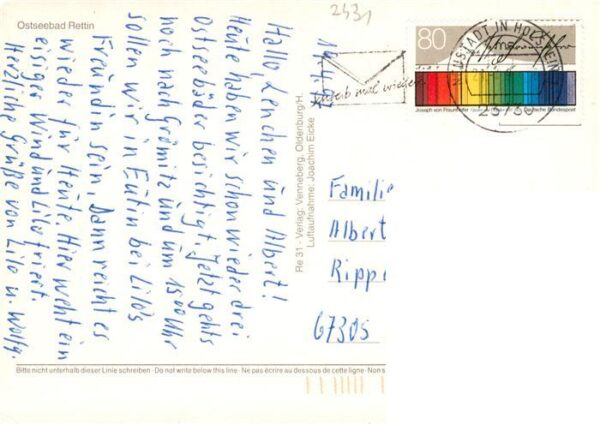 Ostseebad Rettin
2431
14.4.87
Hallo, Lenchen und Albert!
Heute haben wir schon wieder drei
Ostseebäder besichtigt. Jetzt gehts
noch nach Grömitz und um 15 00 Uhr
sollen wir in Eutin bei Lilo's
Freundin sein. Dann reicht es
wieder für Heute. Hier weht ein
eisiger Wind und Lilo friert.
Herzliche Grüße von Lilo u. Wolfg.
Re 31 - Verlag: Venneberg, Oldenburg/H.
Luftaufnahme: Joachim Eicke
80
NEUSTADT IN HOLSTEIN
Schreib mal wieder
Joseph von Fraunhofer
Deutsche Bundespost
Familie
Albert
Rippe
67305
Bitte nicht unterhalb dieser Linie schreiben · Do not write below this line · Ne pas écrire au dessous de cette ligne · Non s